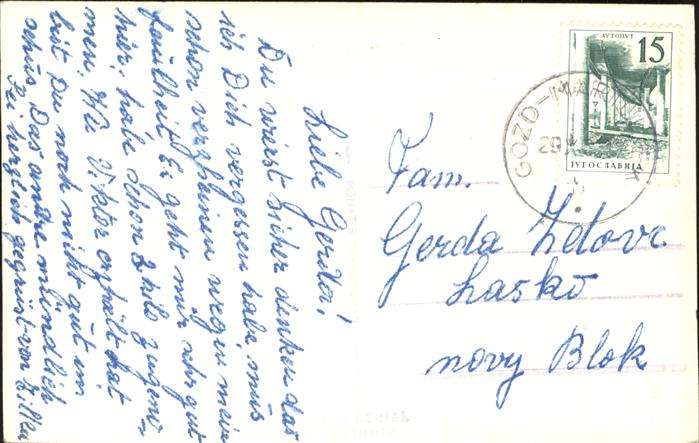 Liebe Gerda!
Du wirst sicher denken das
ich Dich vergessen habe, mus
schon verzheinen wegen meine
faulheit Es geht mir sehr gut
hier, habe schon 2 kilo zugeno-
men. Wie Viktor erzählt hat
bist Du noch nicht gut im
schus. Das andre mündlich
Sei herzlich gegrüst von Zilka
Fam.
Gerda Zdovc
Laško
novy Blok
АУТОПУТ
15
ЈУГОСЛАВИЈА
GOZD-M
29